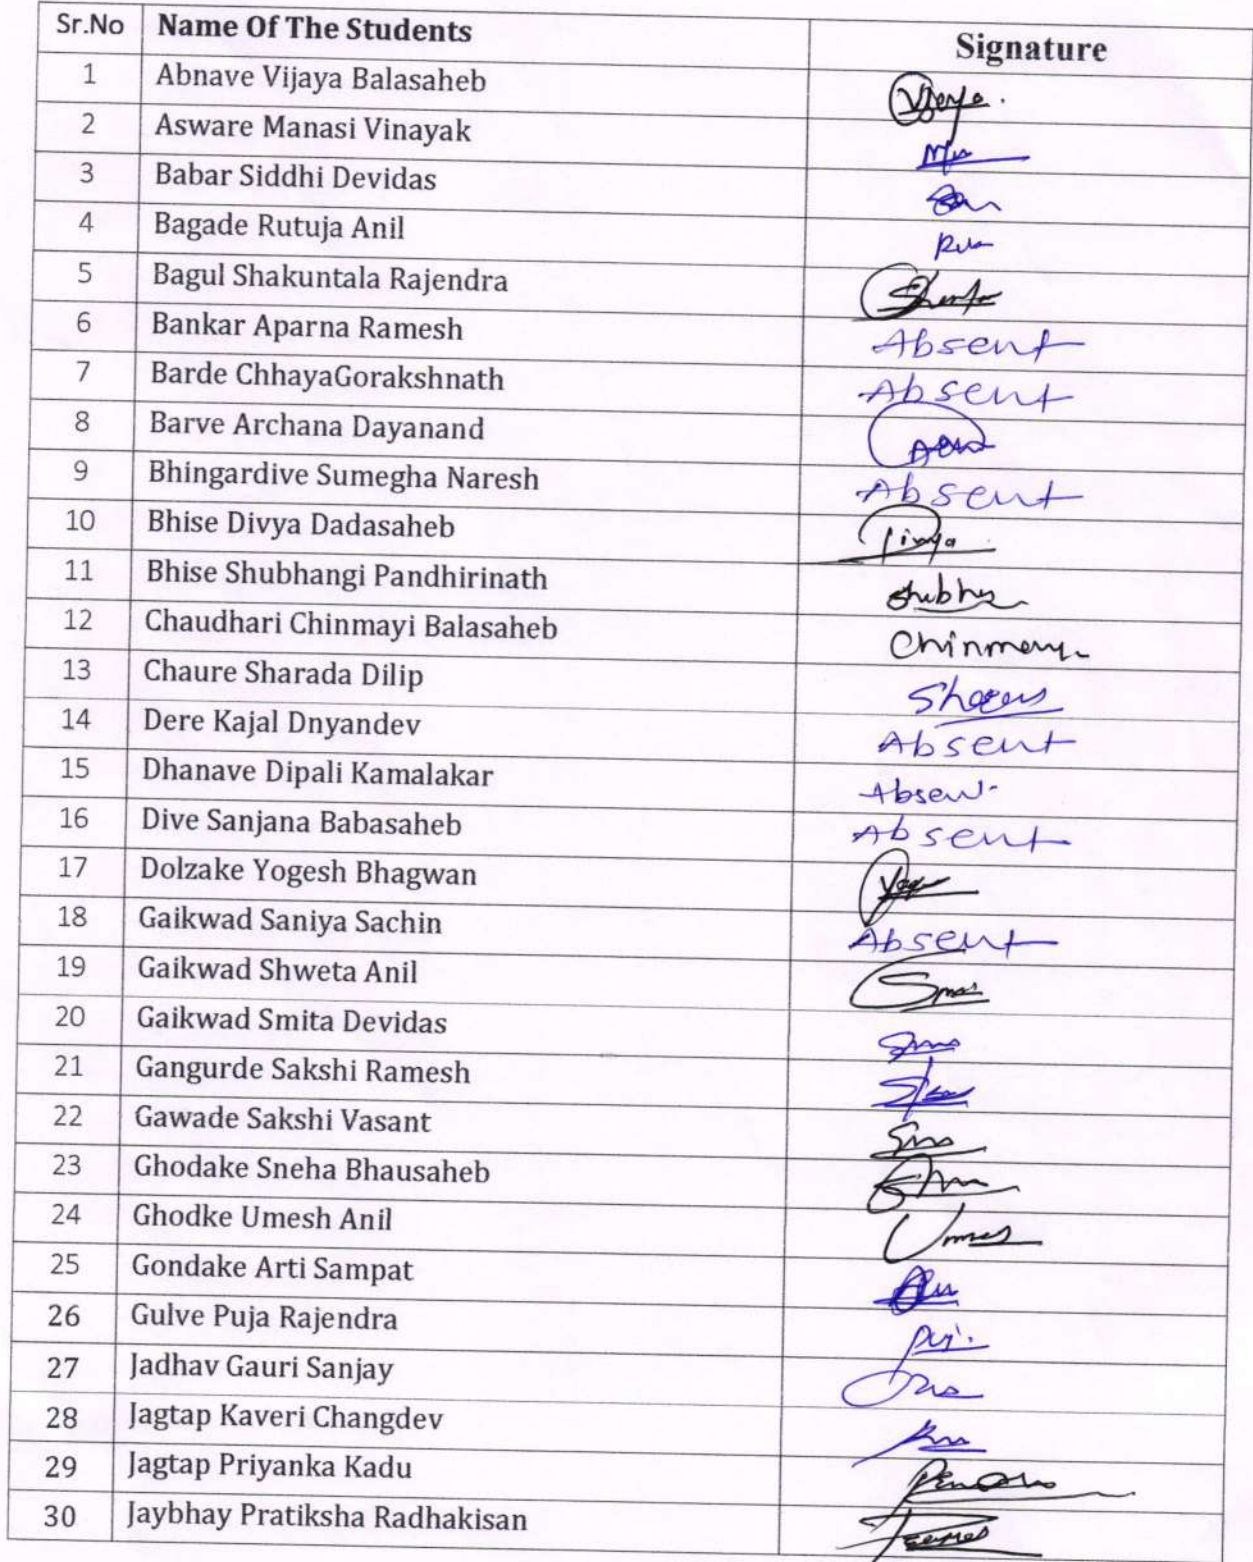 Sr.No Name Of The Students Signature
1 Abnave Vijaya Balasaheb
2 Asware Manasi Vinayak
3 Babar Siddhi Devidas
4 Bagade Rutuja Anil
5 Bagul Shakuntala Rajendra
6 Bankar Aparna Ramesh Absent
7 Barde ChhayaGorakshnath Absent
8 Barve Archana Dayanand
9 Bhingardive Sumegha Naresh Absent
10 Bhise Divya Dadasaheb
11 Bhise Shubhangi Pandhirinath
12 Chaudhari Chinmayi Balasaheb
13 Chaure Sharada Dilip
14 Dere Kajal Dnyandev Absent
15 Dhanave Dipali Kamalakar Absent
16 Dive Sanjana Babasaheb Absent
17 Dolzake Yogesh Bhagwan
18 Gaikwad Saniya Sachin Absent
19 Gaikwad Shweta Anil
20 Gaikwad Smita Devidas
21 Gangurde Sakshi Ramesh
22 Gawade Sakshi Vasant
23 Ghodake Sneha Bhausaheb
24 Ghodke Umesh Anil
25 Gondake Arti Sampat
26 Gulve Puja Rajendra
27 Jadhav Gauri Sanjay
28 Jagtap Kaveri Changdev
29 Jagtap Priyanka Kadu
30 Jaybhay Pratiksha Radhakisan